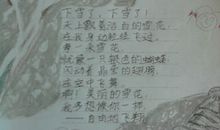 下雪了，下雪了！
天上飘着洁白的雪花，
在我身边轻轻飞过。
每一朵雪花，
就像一只银色的蝴蝶，
闪动着晶莹的翅膀，
在空中飞舞。
啊！美丽的雪花，
我多想像你一样，
——自由地飞翔。